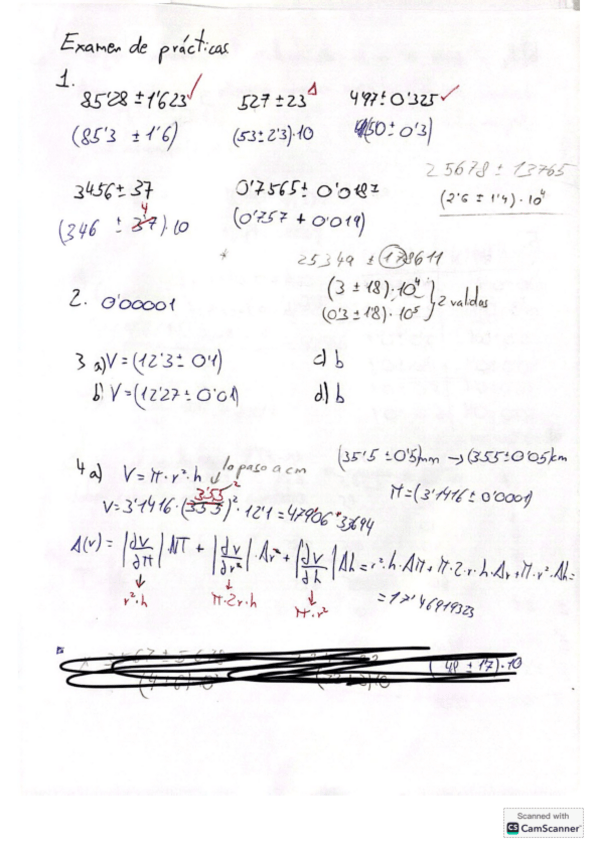 Examen de prácticas
1.
85'28 ± 1'623 ✓ 527 ± 23 497 ± 0'325 ✓
(85'3 ± 1'6) (53 ± 2'3)·10 (50 ± 0'3)
25678 ± 13765
3456 ± 37 0'7565 ± 0'0187 (2'6 ± 1'4)·10⁴
(346 ± 3'7)·10 4 (0'757 + 0'019)
25349 ± 178611
2. 0'00001 (3 ± 18)·10⁴
(0'3 ± 18)·10⁵ } 2 validas
3 a) V = (12'3 ± 0'1) c) b
b) V = (12'27 ± 0'01) d) b
4 a) V = π·r²·h lo paso a cm (35'5 ± 0'5)mm → (3.55 ± 0'05)cm
3'55
V = 3'1416·(35'5)²·12'1 = 479'06 33694 π = (3'1416 ± 0'0001)
Δ(v) = |dv/dπ| Δπ + |dv/dr| Δr + |dv/dh| Δh = r²·h·Δπ + π·2·r·h·Δr + π·r²·Δh =
r²·h π·2r·h π·r² = 17'46919323
(48 ± 1'7)·10
Scanned with
CS CamScanner